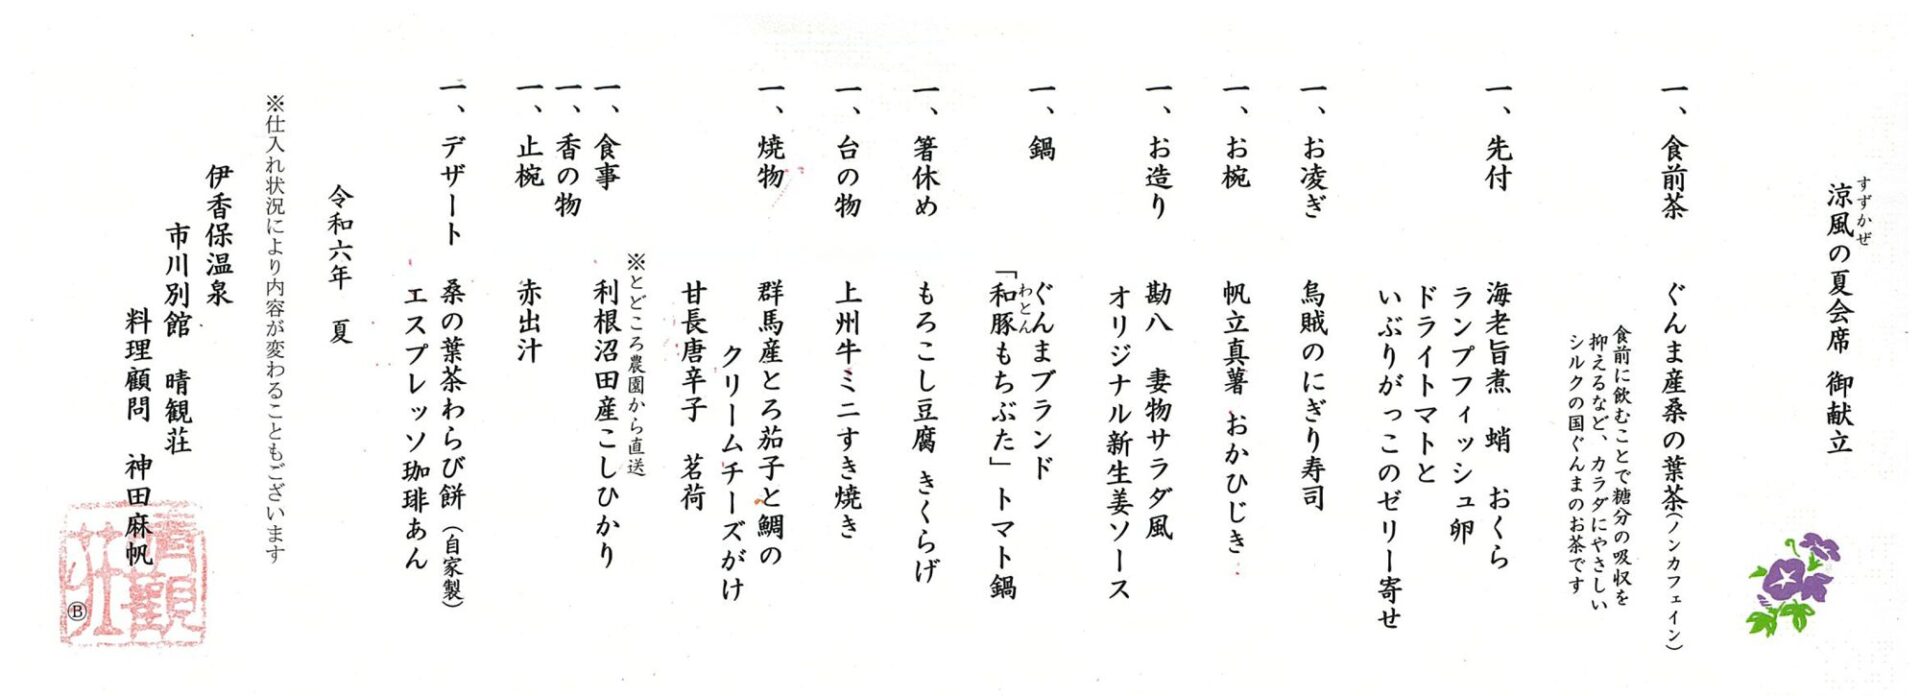 涼風の夏会席 御献立
すずかぜ
一、食前茶 ぐんま産桑の葉茶(ノンカフェイン)
食前に飲むことで糖分の吸収を
抑えるなど、カラダにやさしい
シルクの国ぐんまのお茶です
一、先付 海老旨煮 蛸 おくら
ランプフィッシュ卵
ドライトマトと
いぶりがっこのゼリー寄せ
一、お凌ぎ 烏賊のにぎり寿司
一、お椀 帆立真薯 おかひじき
一、お造り 勘八 妻物サラダ風
オリジナル新生姜ソース
一、鍋 ぐんまブランド
「和豚もちぶた」トマト鍋
わとん
一、箸休め もろこし豆腐 きくらげ
一、台の物 上州牛ミニすき焼き
一、焼物 群馬産とろ茄子と鯛の
クリームチーズがけ
甘長唐辛子 茗荷
※とどころ農園から直送
一、食事 利根沼田産こしひかり
一、香の物
一、止椀 赤出汁
一、デザート 桑の葉茶わらび餅(自家製)
エスプレッソ珈琲あん
令和六年 夏
※仕入れ状況により内容が変わることもございます
伊香保温泉
市川別館 晴観荘
料理顧問 神田麻帆
晴觀
荘
Ⓑ